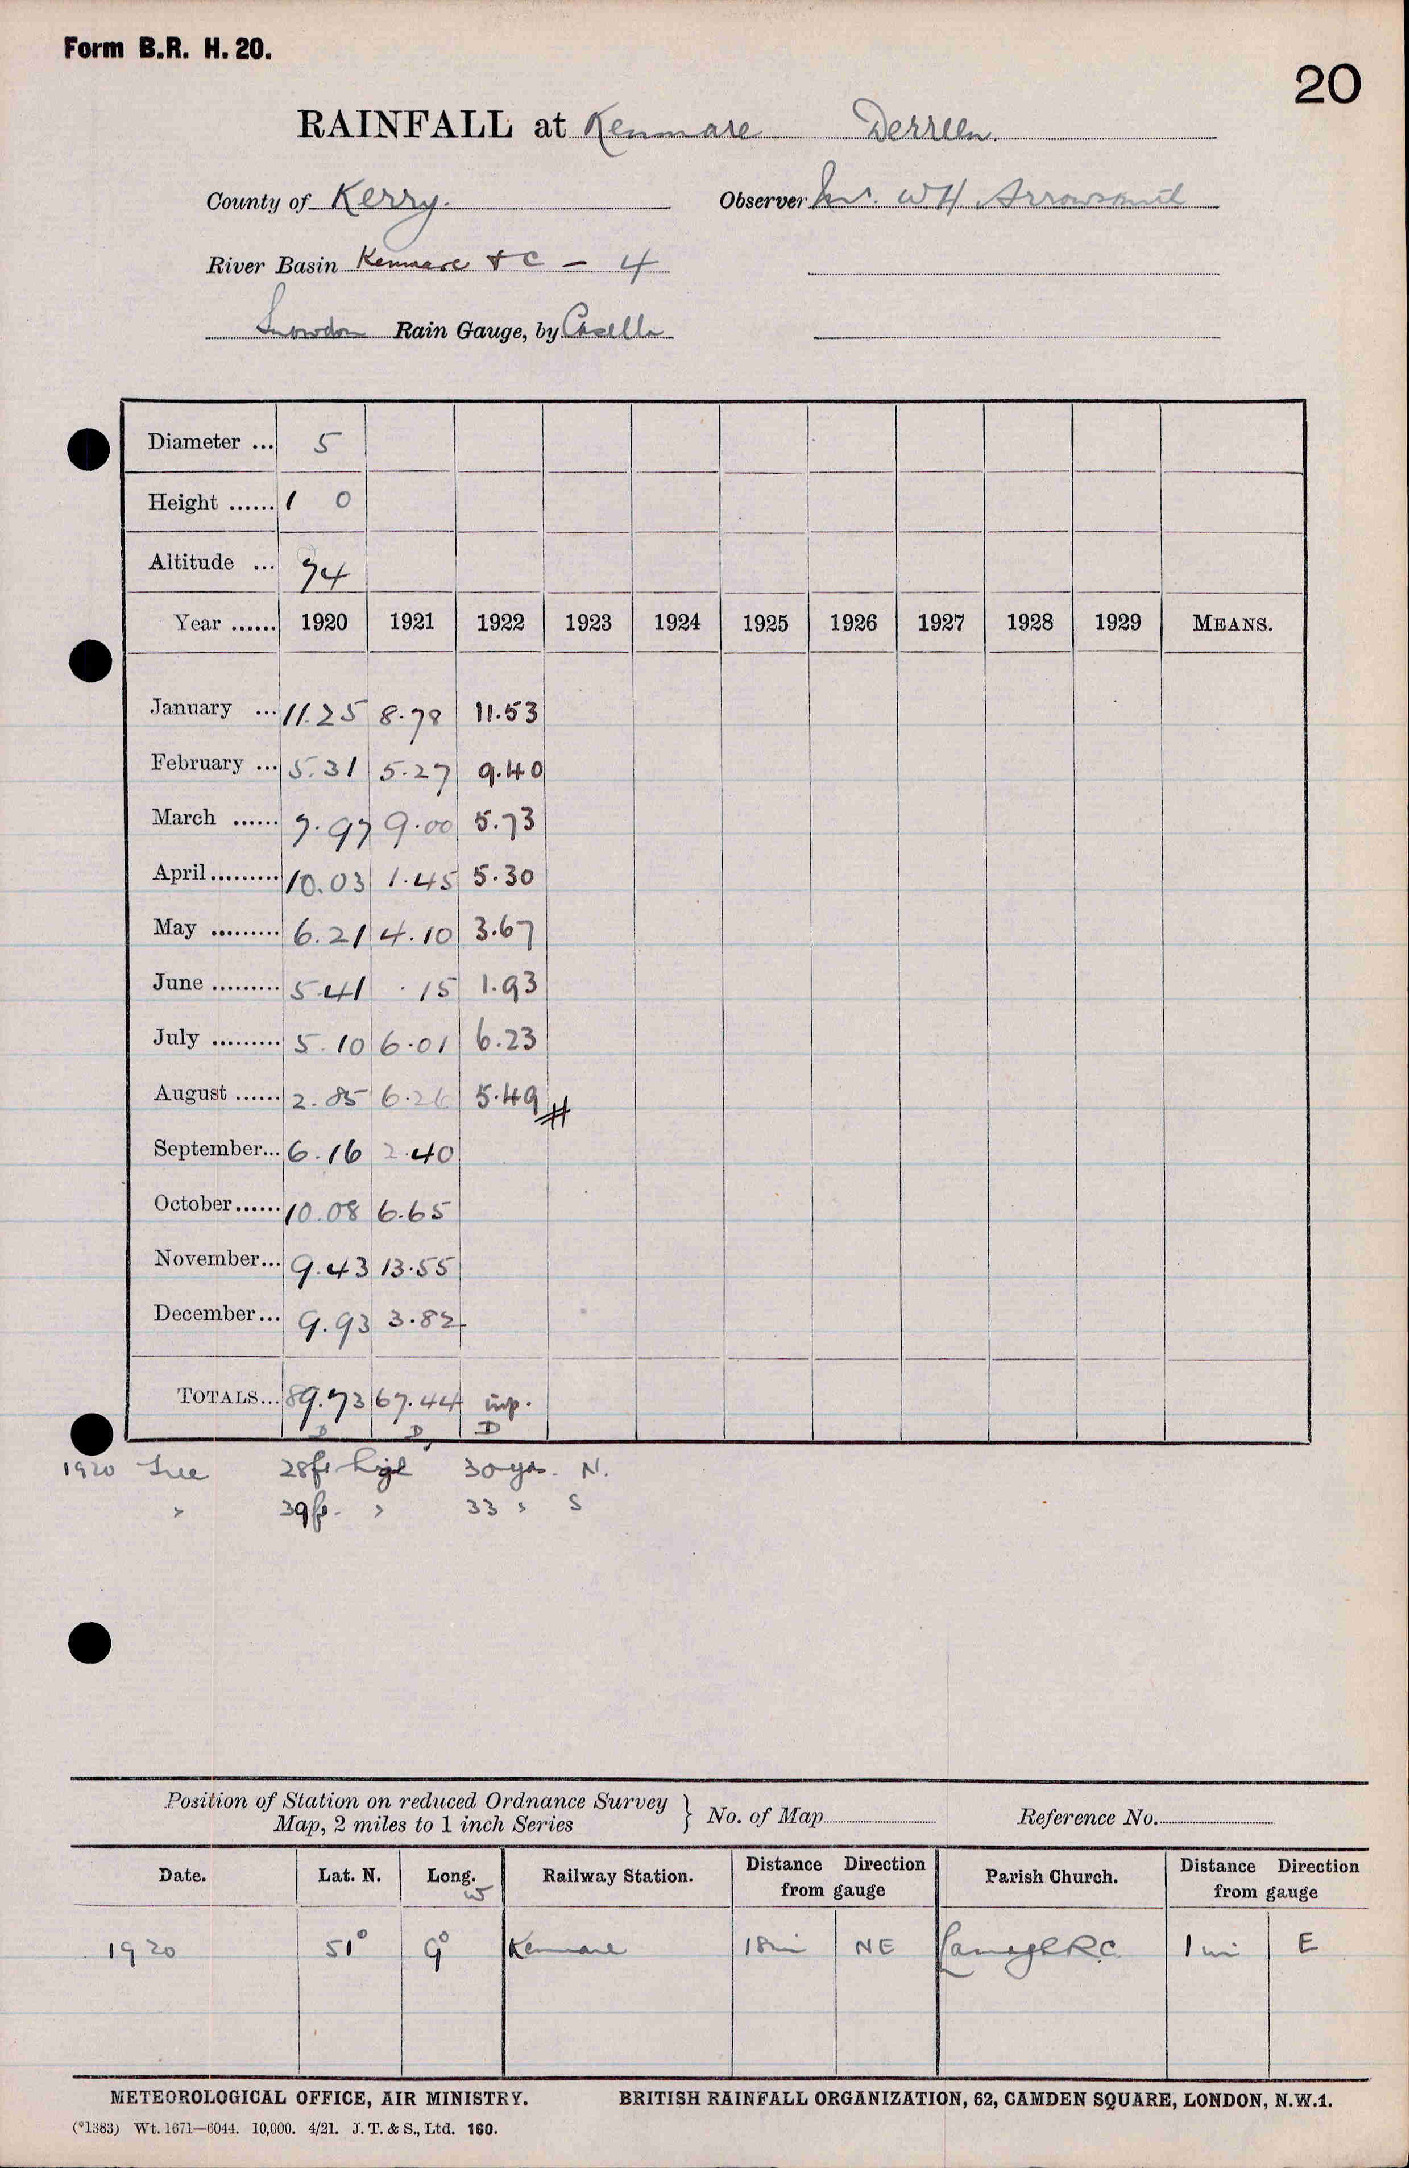 Form B.R. H. 20.
20
RAINFALL at Kenmare Derreen.
County of Kerry. Observer W H Arrowsmith
River Basin Kenmare & C - 4
Snowdon Rain Gauge, by Casella
Diameter ... 5
Height ...... 1 0
Altitude ... 74
Year ...... 1920 1921 1922 1923 1924 1925 1926 1927 1928 1929 MEANS.
January ... 11.25 8.78 11.53
February ... 5.31 5.27 9.40
March ...... 7.97 9.00 5.73
April ......... 10.03 1.45 5.30
May ......... 6.21 4.10 3.67
June ......... 5.41 .15 1.93
July ......... 5.10 6.01 6.23
August ...... 2.85 6.26 5.49 #
September... 6.16 2.40
October ...... 10.08 6.65
November... 9.43 13.55
December... 9.93 3.82
TOTALS... 89.73 67.44 inp.
D D D
1920 Tree 28ft high 30 yds. N.
" 39ft. " 33 " S
Position of Station on reduced Ordnance Survey Map, 2 miles to 1 inch Series } No. of Map Reference No.
Date. Lat. N. Long. W Railway Station. Distance Direction from gauge Parish Church. Distance Direction from gauge
1920 51° 9° Kenmare 18 mi NE R.C. 1 mi E
METEOROLOGICAL OFFICE, AIR MINISTRY. BRITISH RAINFALL ORGANIZATION, 62, CAMDEN SQUARE, LONDON, N.W.1.
(*1383) Wt. 1671—6044. 10,000. 4/21. J. T. & S., Ltd. 160.